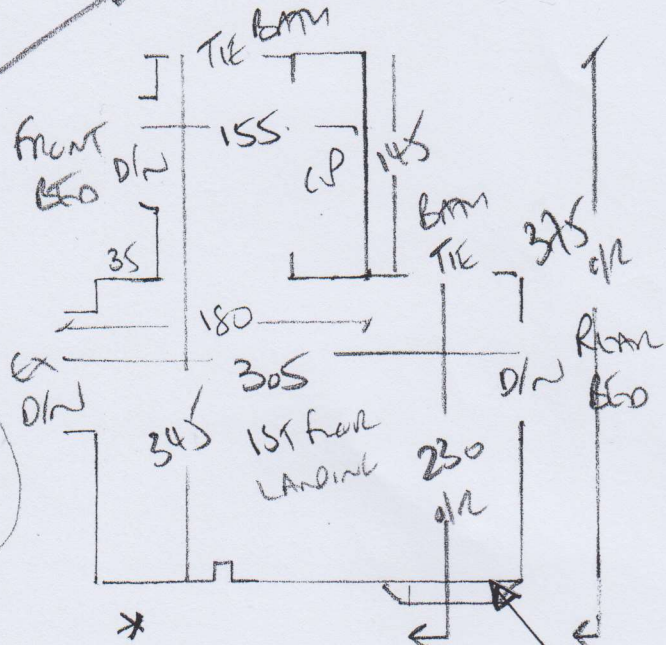 TIE BATH
FRONT
BED
D/N
155
CP
145
BATH
TIE
375
O/R
35
180
EX
D/N
305
D/N
REAR
BED
345
1ST FLOOR
LANDING
230
O/R